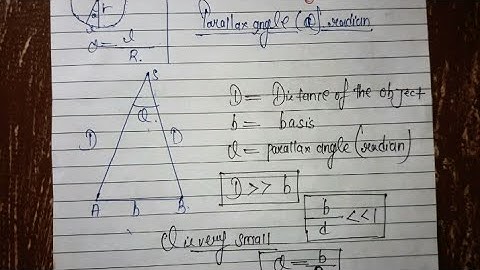 r
α = l
R.
Parallax angle (α) radian
S
α
D
D
A
b
B
D = Distance of the object
b = basis
α = parallax angle (radian)
D >> b
b
d
<<1
α is very small
α = b